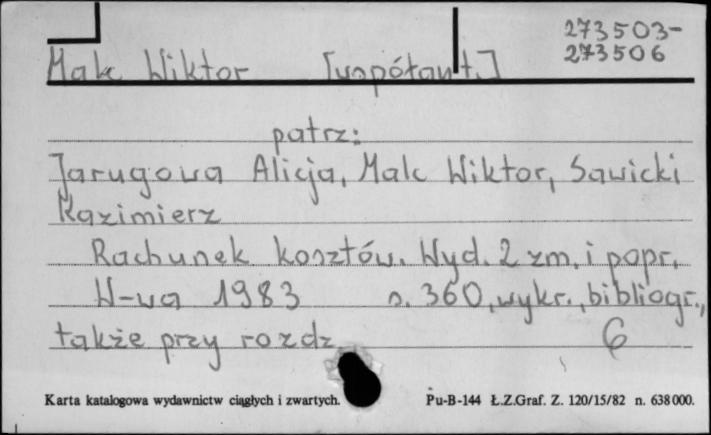 273503-
273506
Malc Wiktor [współaut.]
patrz:
Jarugowa Alicja, Malc Wiktor, Sawicki
Kazimierz
Rachunek kosztów. Wyd. 2 zm. i popr.
W-wa 1983 s. 360, wykr., bibliogr.,
także przy rozdz
6
Karta katalogowa wydawnictw ciągłych i zwartych. Pu-B-144 Ł.Z.Graf. Z. 120/15/82 n. 638000.